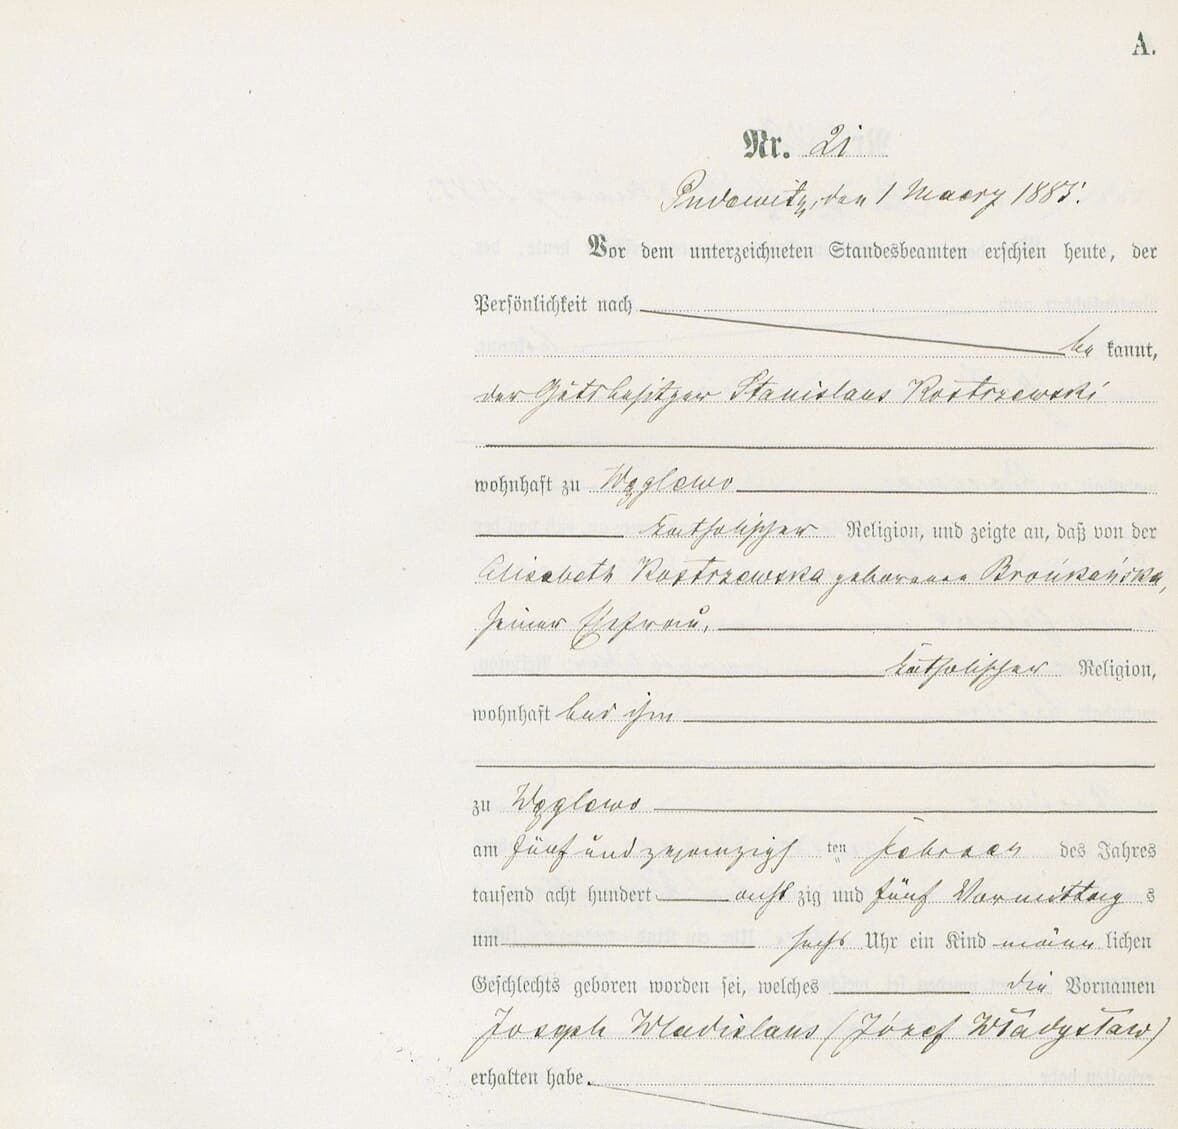 A.
Nr. 21
Pudewitz, den 1 Maerz 1885.
Vor dem unterzeichneten Standesbeamten erschien heute, der
Persönlichkeit nach
be kannt,
der Gutsbesitzer Stanislaus Kostrzewski
wohnhaft zu Węglewo
katholischer Religion, und zeigte an, daß von der
Elisabeth Kostrzewska geborenen Brońkańska,
seiner Ehefrau,
katholischer Religion,
wohnhaft bei ihm
zu Węglewo
am fünf und zwanzigsten Februar des Jahres
tausend acht hundert acht zig und fünf Vormittag s
um sechs Uhr ein Kind männ lichen
Geschlechts geboren worden sei, welches die Vornamen
Joseph Wladislaus (Józef Władysław)
erhalten habe.